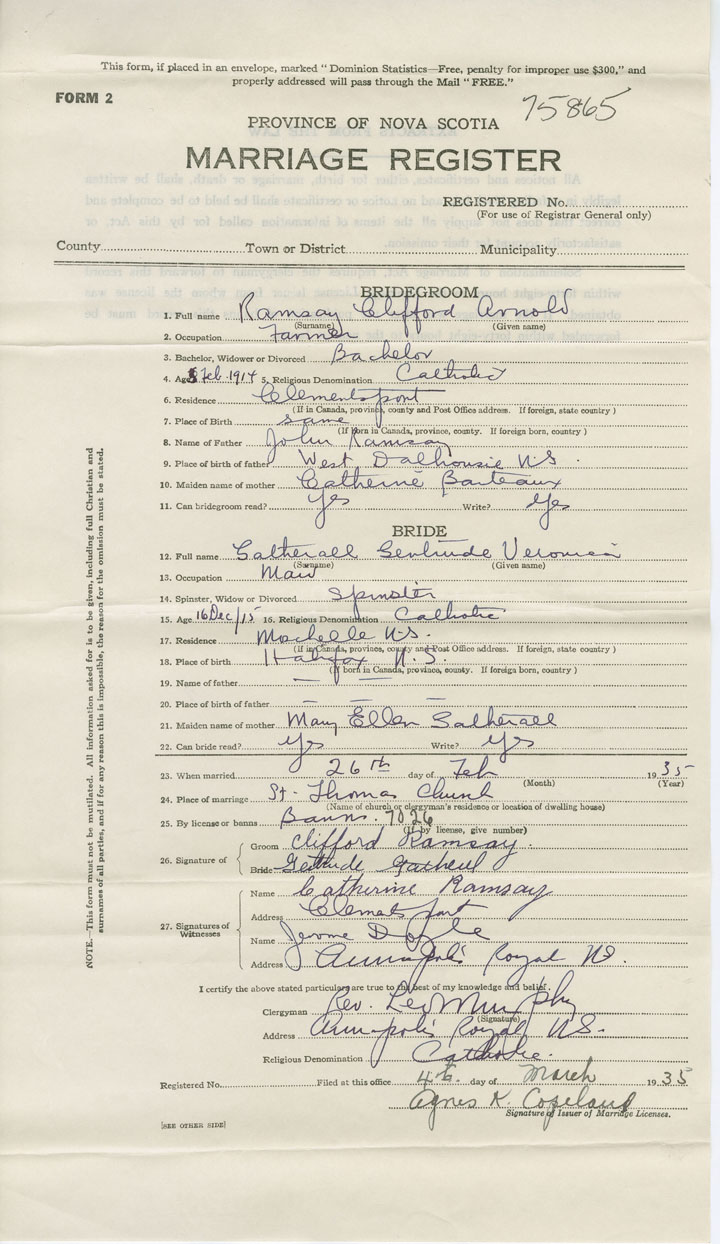 This form, if placed in an envelope, marked "Dominion Statistics—Free, penalty for improper use $300," and
properly addressed will pass through the Mail "FREE."
FORM 2
75865
PROVINCE OF NOVA SCOTIA
MARRIAGE REGISTER
REGISTERED No.
(For use of Registrar General only)
County Town or District Municipality
BRIDEGROOM
1. Full name Ramsay Clifford Arnold
(Surname) (Given name)
2. Occupation Farmer
3. Bachelor, Widower or Divorced Bachelor
4. Age 8 Feb 1914 5. Religious Denomination Catholic
6. Residence Clementsport
(If in Canada, province, county and Post Office address. If foreign, state country)
7. Place of Birth same
(If born in Canada, province, county. If foreign born, country)
8. Name of Father John Ramsay
9. Place of birth of father West Dalhousie N.S.
10. Maiden name of mother Catherine Barteaux
11. Can bridegroom read? Yes Write? Yes
BRIDE
12. Full name Gertrude Veronica
(Surname) (Given name)
13. Occupation Maid
14. Spinster, Widow or Divorced Spinster
15. Age 16 Dec/15 16. Religious Denomination Catholic
17. Residence Mochelle N.S.
(If in Canada, province, county and Post Office address. If foreign, state country)
18. Place of birth Halifax N.S.
(If born in Canada, province, county. If foreign born, country)
19. Name of father — —
20. Place of birth of father — — —
21. Maiden name of mother Mary Ellen
22. Can bride read? Yes Write? Yes
23. When married 26th day of Feb 1935
(Month) (Year)
24. Place of marriage St. Thomas Church
(Name of church or clergyman's residence or location of dwelling house)
25. By license or banns Banns. 7026
(If by license, give number)
26. Signature of
Groom Clifford Ramsay.
Bride Gertrude
27. Signatures of Witnesses
Name Catherine Ramsay
Address Clementsport
Name Jerome Doyle
Address Annapolis Royal NS.
I certify the above stated particulars are true to the best of my knowledge and belief.
Clergyman Rev. Leo Murphy
(Signature)
Address Annapolis Royal N.S.
Religious Denomination Catholic.
Registered No. Filed at this office 4th. day of March 1935
Agnes K. Copeland
Signature of Issuer of Marriage Licenses.
[SEE OTHER SIDE]
NOTE.—This form must not be mutilated. All information asked for is to be given, including full Christian and
surnames of all parties, and if for any reason this is impossible, the reason for the omission must be stated.